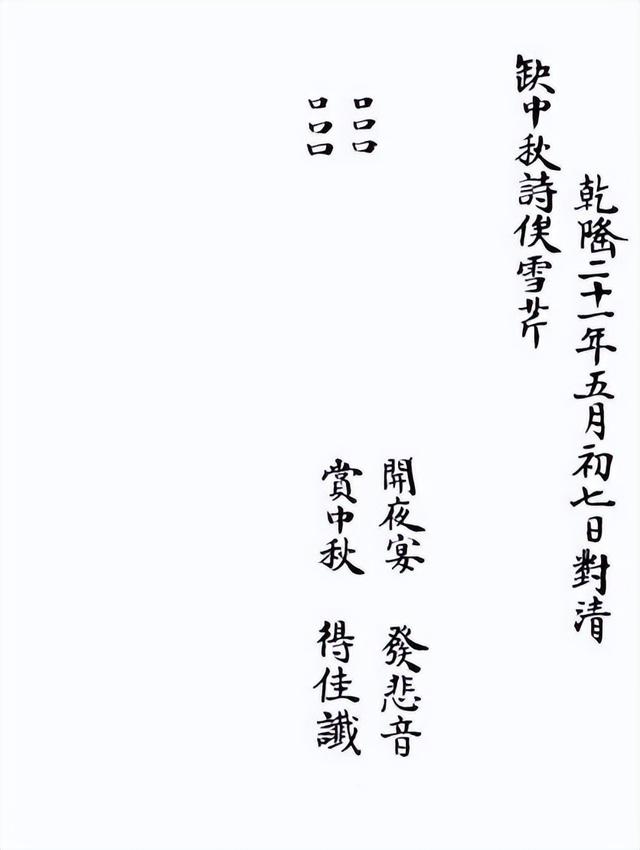 乾隆二十一年五月初七日對清
缺中秋詩俟雪芹
開夜宴 發悲音
口口口
賞中秋 得佳讖
口口口